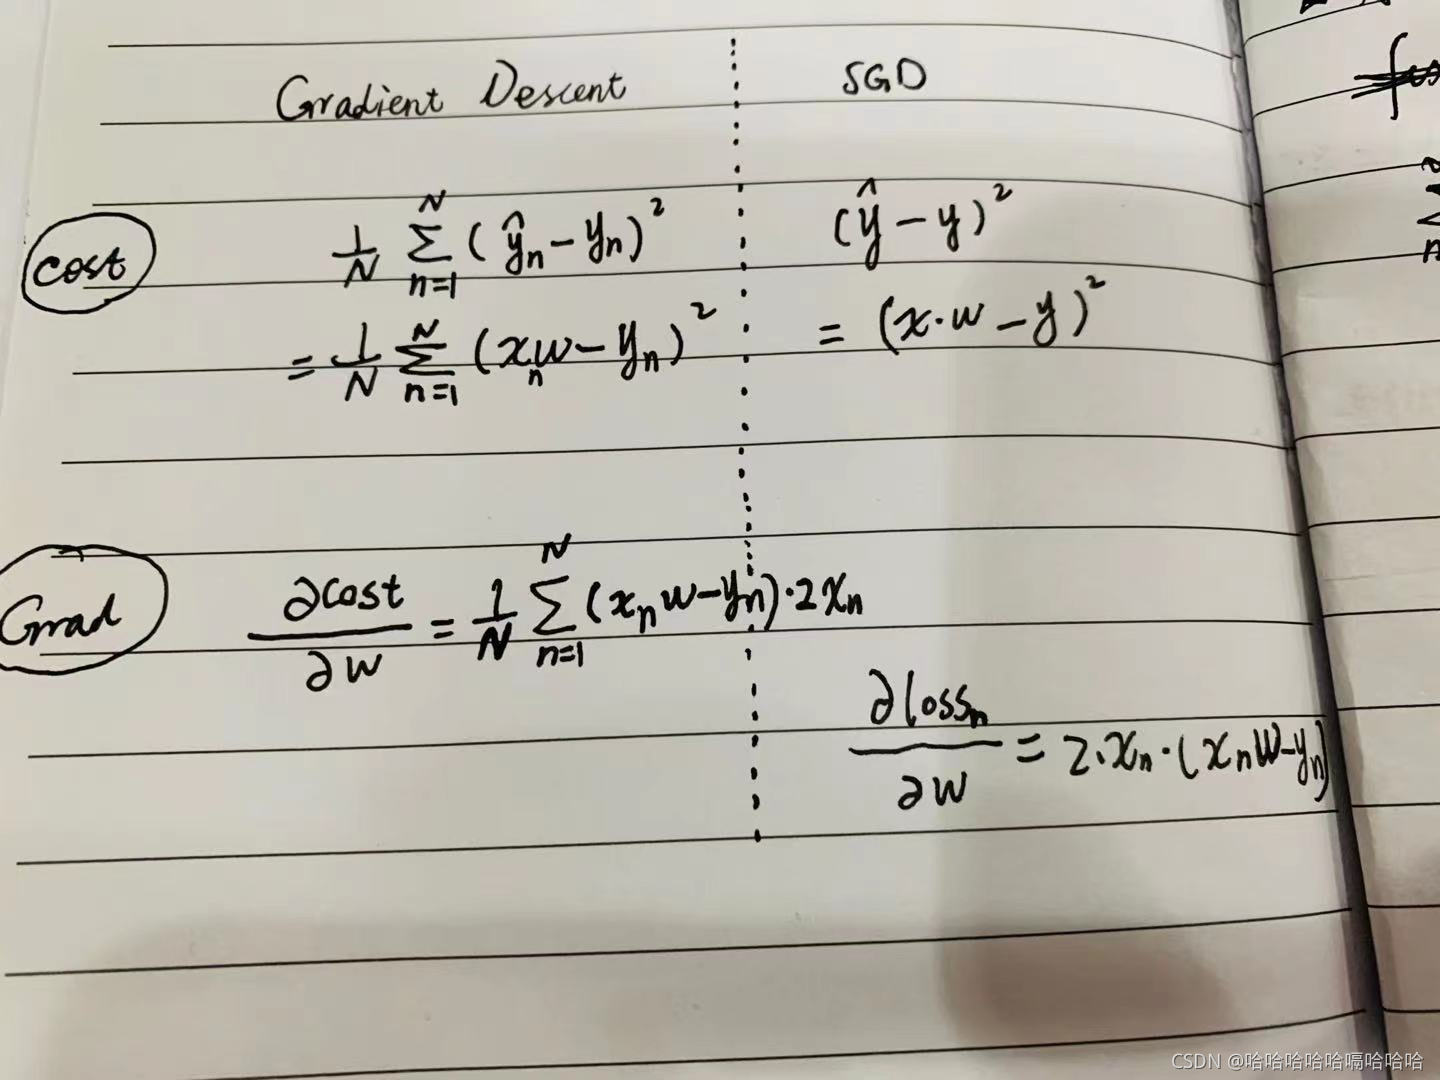 Gradient Descent SGD
cost 1/N Σ_{n=1}^{N} (ŷ_n - y_n)² (ŷ - y)²
= 1/N Σ_{n=1}^{N} (x_n w - y_n)² = (x·w - y)²
Grad ∂cost/∂w = 1/N Σ_{n=1}^{N} (x_n w - y_n)·2x_n
∂loss_n/∂w = 2·x_n·(x_n w - y_n)
CSDN @哈哈哈哈哈嗝哈哈哈